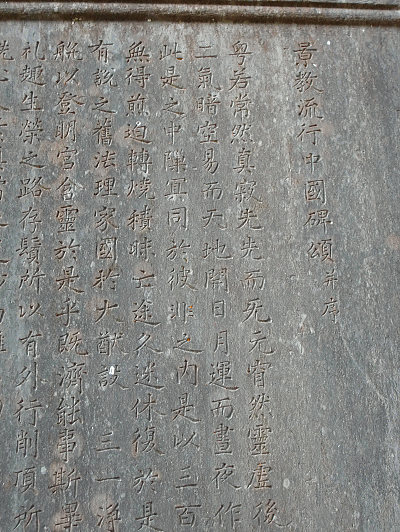 景教流行中國碑頌并序
粤若常然真寂先先而无元窅然靈虛後
二氣暗空易而天地開日月運而晝夜作
此是之中隙冥同於彼非之內是以三百
無得煎迫轉燒積昧亡途久迷休復於是
有說之舊法理家國於大猷設 三一淨
艤以登明宮含靈於是乎既濟能事斯畢
礼趣生榮之路存鬚所以有外行削頂所